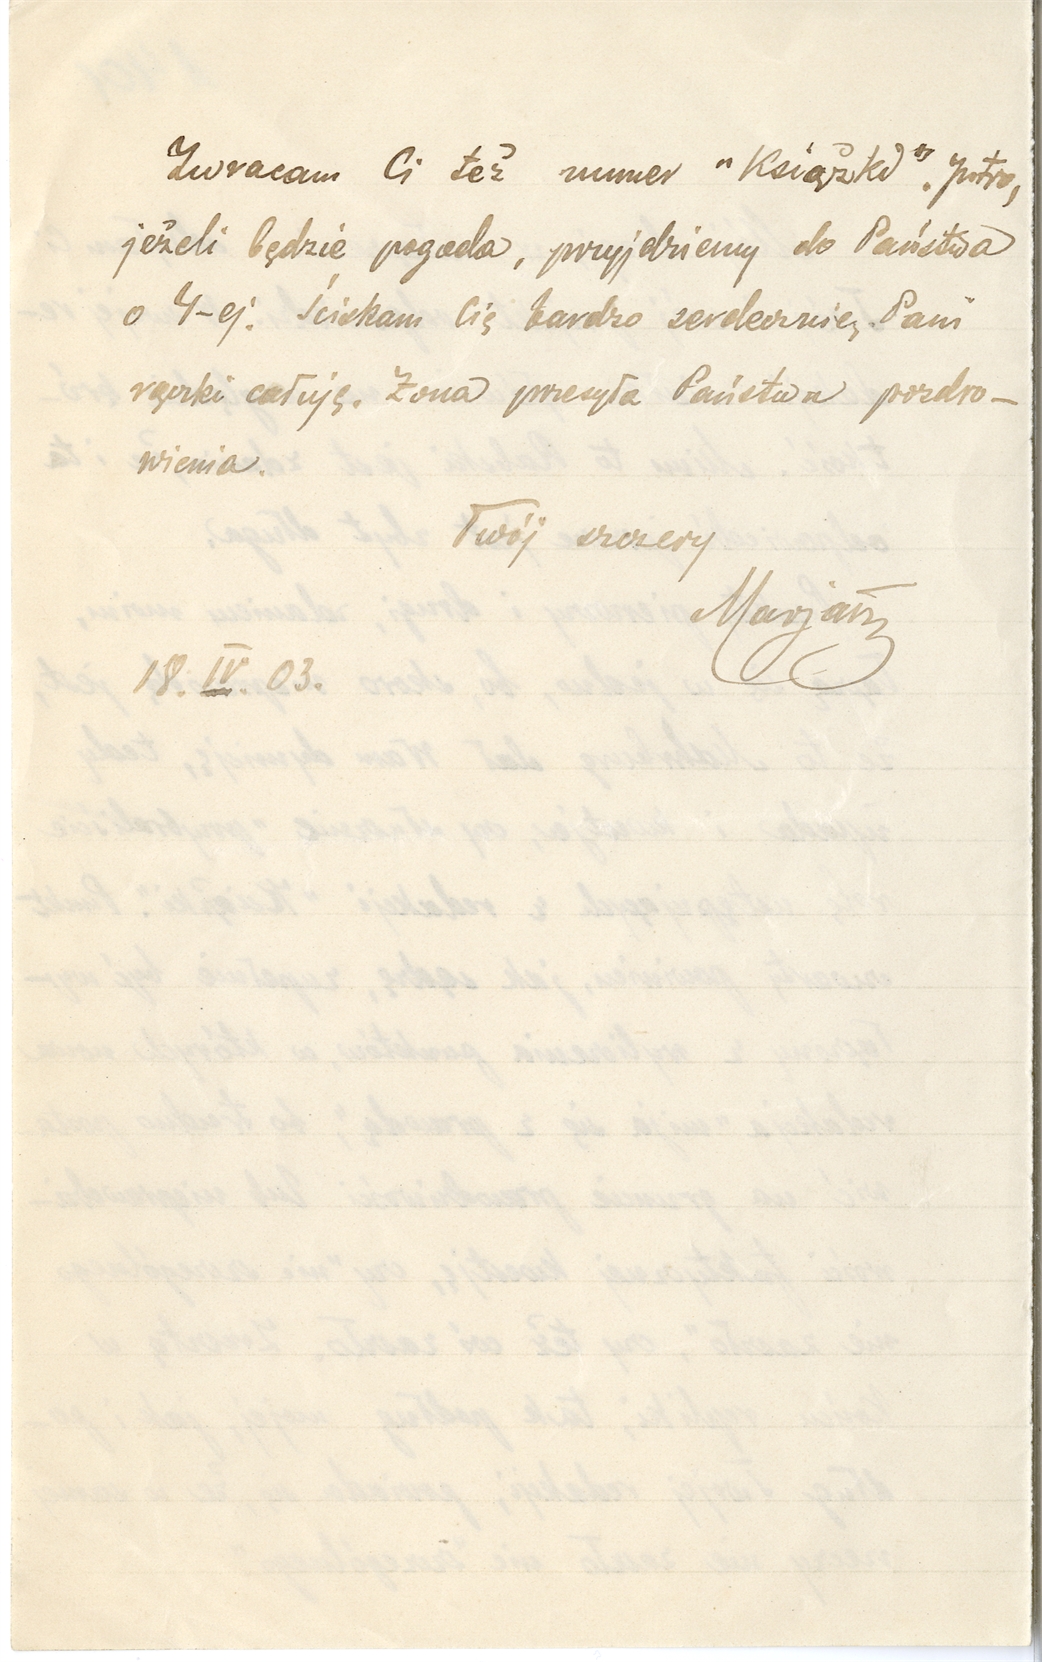 Zwracam Ci też numer "Książki". Jutro,
jeżeli będzie pogoda, przyjdziemy do Państwa
o 4-ej. Ściskam Cię bardzo serdecznie. Pani
rączki całuję. Żona przesyła Państwu pozdro-
wienia.
Twój szczery
Marjan
18. IV. 03.